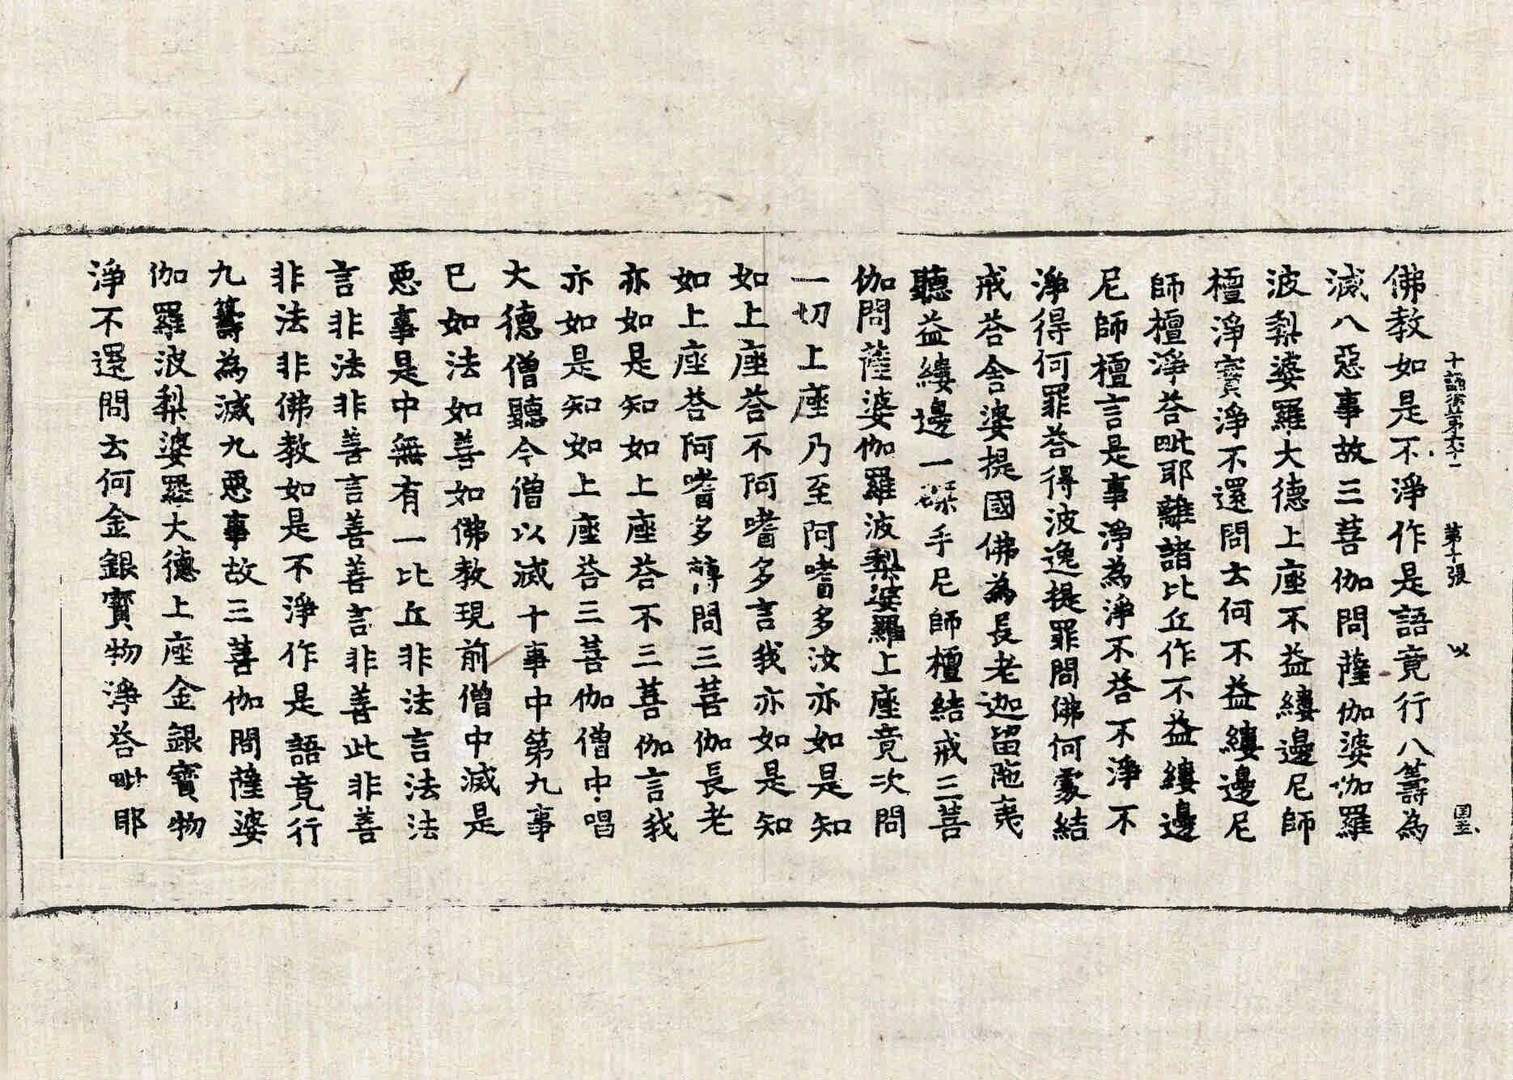 佛教如是不淨作是語竟行八籌為
十誦律第六十一 第十張 以
滅八惡事故三菩伽問薩伽婆伽羅
波梨婆羅大德上座不益縷邊尼師
檀淨實淨不還問云何不益縷邊尼
師檀淨荅毗耶離諸比丘作不益縷邊
尼師檀言是事淨為淨不荅不淨不
淨得何罪荅得波逸提罪問佛何處結
戒荅舍婆提國佛為長老迦留陁夷
聽益縷邊一磔手尼師檀結戒三菩
伽問薩婆伽羅波梨婆羅上座竟次問
一切上座乃至阿嗜多汝亦如是知
如上座荅不阿嗜多言我亦如是知
如上座荅阿嗜多轉問三菩伽長老
亦如是知如上座荅不三菩伽言我
亦如是知如上座荅三菩伽僧中唱
大德僧聽今僧以滅十事中第九事
已如法如善如佛教現前僧中滅是
惡事是中無有一比丘非法言法法
言非法非善言善善言非善此非善
非法非佛教如是不淨作是語竟行
九籌為滅九惡事故三菩伽問薩婆
伽羅波梨婆羅大德上座金銀寶物
淨不還問云何金銀寶物淨荅毗耶